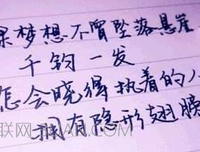 果梦想不曾坠落悬崖
千钧一发
怎会晓得执着的人
拥有隐形翅膀